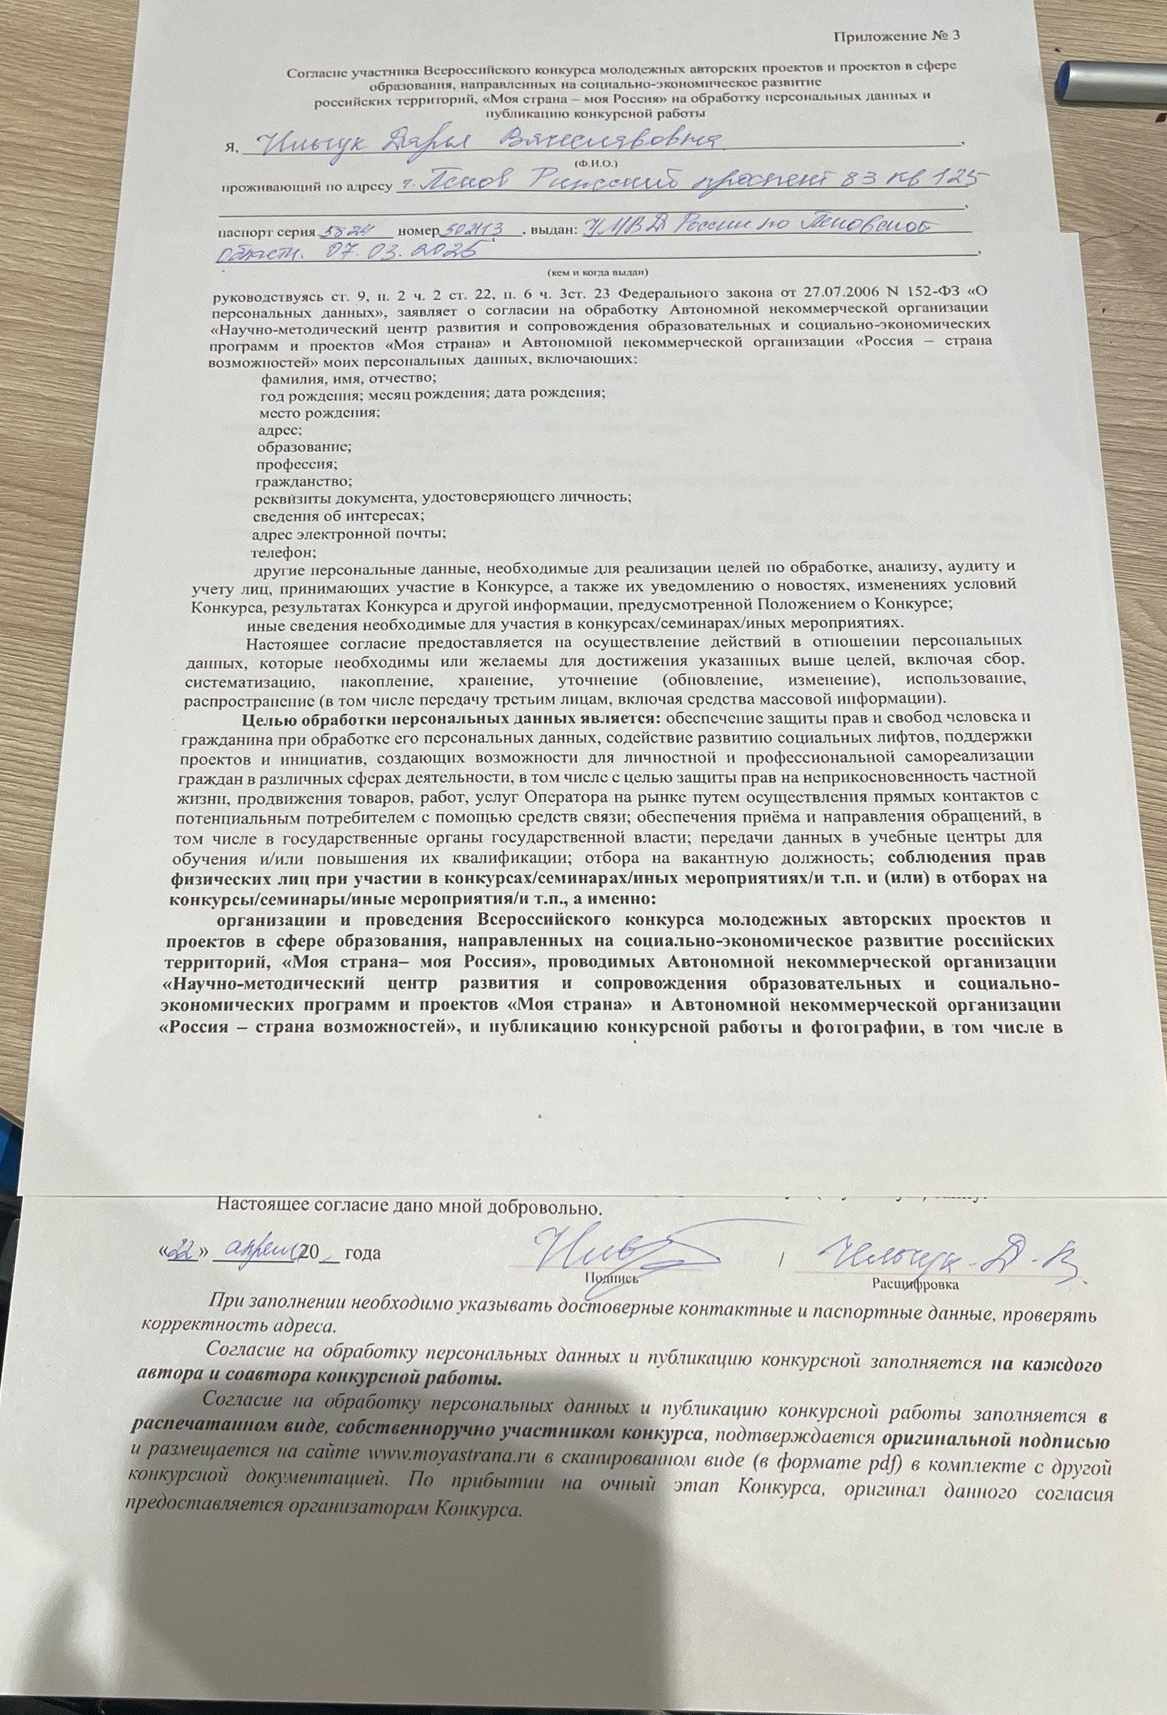 Приложение № 3
Согласие участника Всероссийского конкурса молодежных авторских проектов и проектов в сфере
образования, направленных на социально-экономическое развитие
российских территорий, «Моя страна – моя Россия» на обработку персональных данных и
публикацию конкурсной работы
Я, Ильчук Дарья Вячеславовна,
(Ф.И.О.)
проживающий по адресу г. Псков Рижский проспект 83 кв 125
паспорт серия 5824 номер 502113, выдан: УМВД России по Псковской
области. 07.03.2025,
(кем и когда выдан)
руководствуясь ст. 9, п. 2 ч. 2 ст. 22, п. 6 ч. 3ст. 23 Федерального закона от 27.07.2006 N 152-ФЗ «О
персональных данных», заявляет о согласии на обработку Автономной некоммерческой организации
«Научно-методический центр развития и сопровождения образовательных и социально-экономических
программ и проектов «Моя страна» и Автономной некоммерческой организации «Россия – страна
возможностей» моих персональных данных, включающих:
фамилия, имя, отчество;
год рождения; месяц рождения; дата рождения;
место рождения;
адрес;
образование;
профессия;
гражданство;
реквизиты документа, удостоверяющего личность;
сведения об интересах;
адрес электронной почты;
телефон;
другие персональные данные, необходимые для реализации целей по обработке, анализу, аудиту и
учету лиц, принимающих участие в Конкурсе, а также их уведомлению о новостях, изменениях условий
Конкурса, результатах Конкурса и другой информации, предусмотренной Положением о Конкурсе;
иные сведения необходимые для участия в конкурсах/семинарах/иных мероприятиях.
Настоящее согласие предоставляется на осуществление действий в отношении персональных
данных, которые необходимы или желаемы для достижения указанных выше целей, включая сбор,
систематизацию, накопление, хранение, уточнение (обновление, изменение), использование,
распространение (в том числе передачу третьим лицам, включая средства массовой информации).
Целью обработки персональных данных является: обеспечение защиты прав и свобод человека и
гражданина при обработке его персональных данных, содействие развитию социальных лифтов, поддержки
проектов и инициатив, создающих возможности для личностной и профессиональной самореализации
граждан в различных сферах деятельности, в том числе с целью защиты прав на неприкосновенность частной
жизни, продвижения товаров, работ, услуг Оператора на рынке путем осуществления прямых контактов с
потенциальным потребителем с помощью средств связи; обеспечения приёма и направления обращений, в
том числе в государственные органы государственной власти; передачи данных в учебные центры для
обучения и/или повышения их квалификации; отбора на вакантную должность; соблюдения прав
физических лиц при участии в конкурсах/семинарах/иных мероприятиях/и т.п. и (или) в отборах на
конкурсы/семинары/иные мероприятия/и т.п., а именно:
организации и проведения Всероссийского конкурса молодежных авторских проектов и
проектов в сфере образования, направленных на социально-экономическое развитие российских
территорий, «Моя страна– моя Россия», проводимых Автономной некоммерческой организации
«Научно-методический центр развития и сопровождения образовательных и социально-
экономических программ и проектов «Моя страна» и Автономной некоммерческой организации
«Россия – страна возможностей», и публикацию конкурсной работы и фотографии, в том числе в
Настоящее согласие дано мной добровольно.
«22» апреля 20_ года / Ильчук Д.В.
Подпись Расшифровка
При заполнении необходимо указывать достоверные контактные и паспортные данные, проверять
корректность адреса.
Согласие на обработку персональных данных и публикацию конкурсной заполняется на каждого
автора и соавтора конкурсной работы.
Согласие на обработку персональных данных и публикацию конкурсной работы заполняется в
распечатанном виде, собственноручно участником конкурса, подтверждается оригинальной подписью
и размещается на сайте www.moyastrana.ru в сканированном виде (в формате pdf) в комплекте с другой
конкурсной документацией. По прибытии на очный этап Конкурса, оригинал данного согласия
предоставляется организаторам Конкурса.